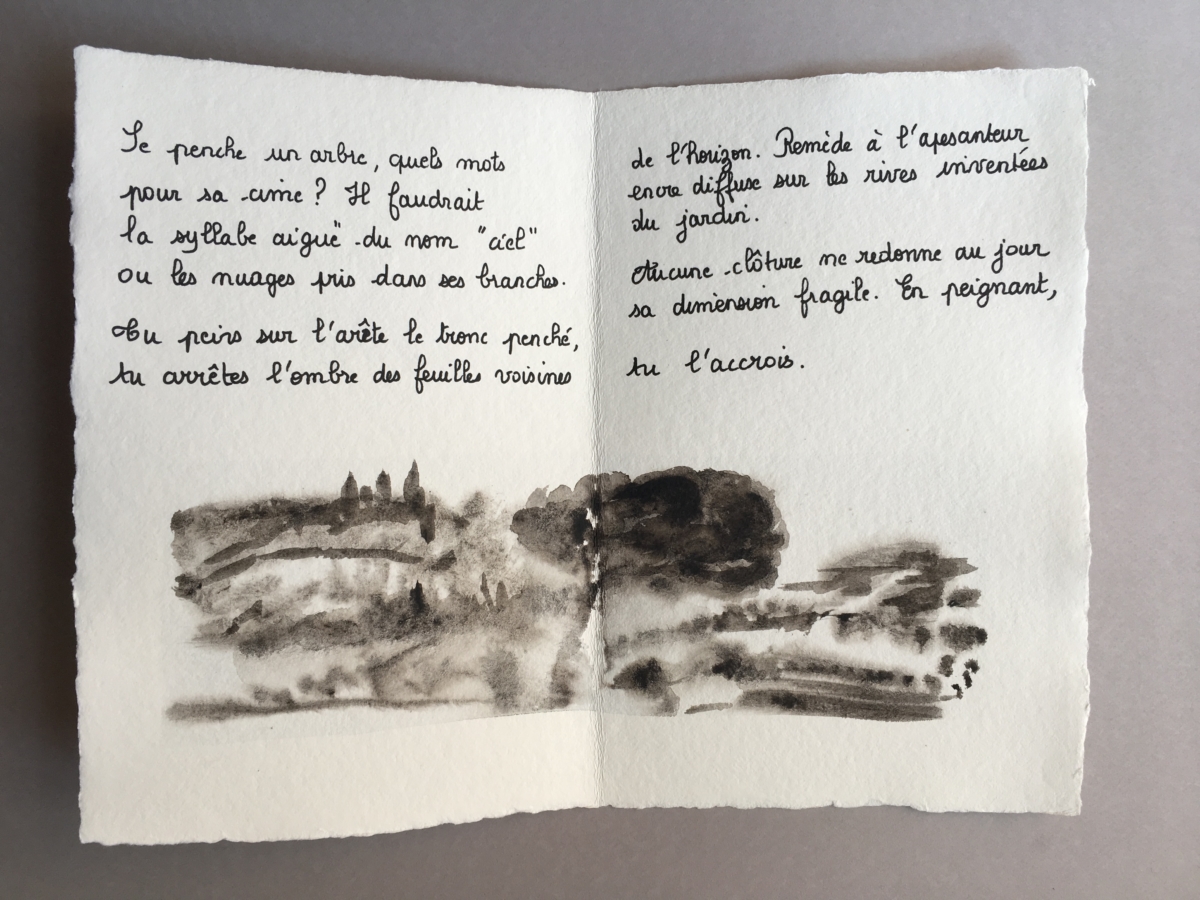 Se penche un arbre, quels mots
pour sa cime ? Il faudrait
la syllabe aiguë du nom "ciel"
ou les nuages pris dans ses branches.
Tu peins sur l'arête le tronc penché,
tu arrêtes l'ombre des feuilles voisines
de l'horizon. Remède à l'apesanteur
encre diffuse sur les rives inventées
du jardin.
Aucune clôture ne redonne au jour
sa dimension fragile. En peignant,
tu l'accrois.